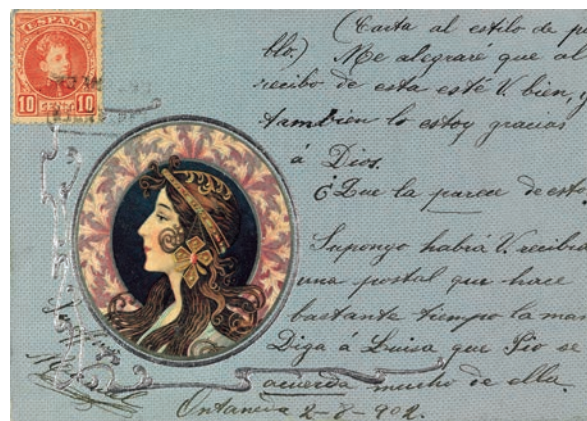 ESPAÑA
10 10
(Carta al estilo de pue
blo.) Me alegraré que al
recibo de esta esté V. bien, y
tambien lo estoy gracias
á Dios.
¿Que la parece de esta
Supongo habrá V. recibido
una postal que hace
bastante tiempo la man
Diga á Luisa que Pio se
acuerda mucho de ella.
Ontaneda 2-8-902.